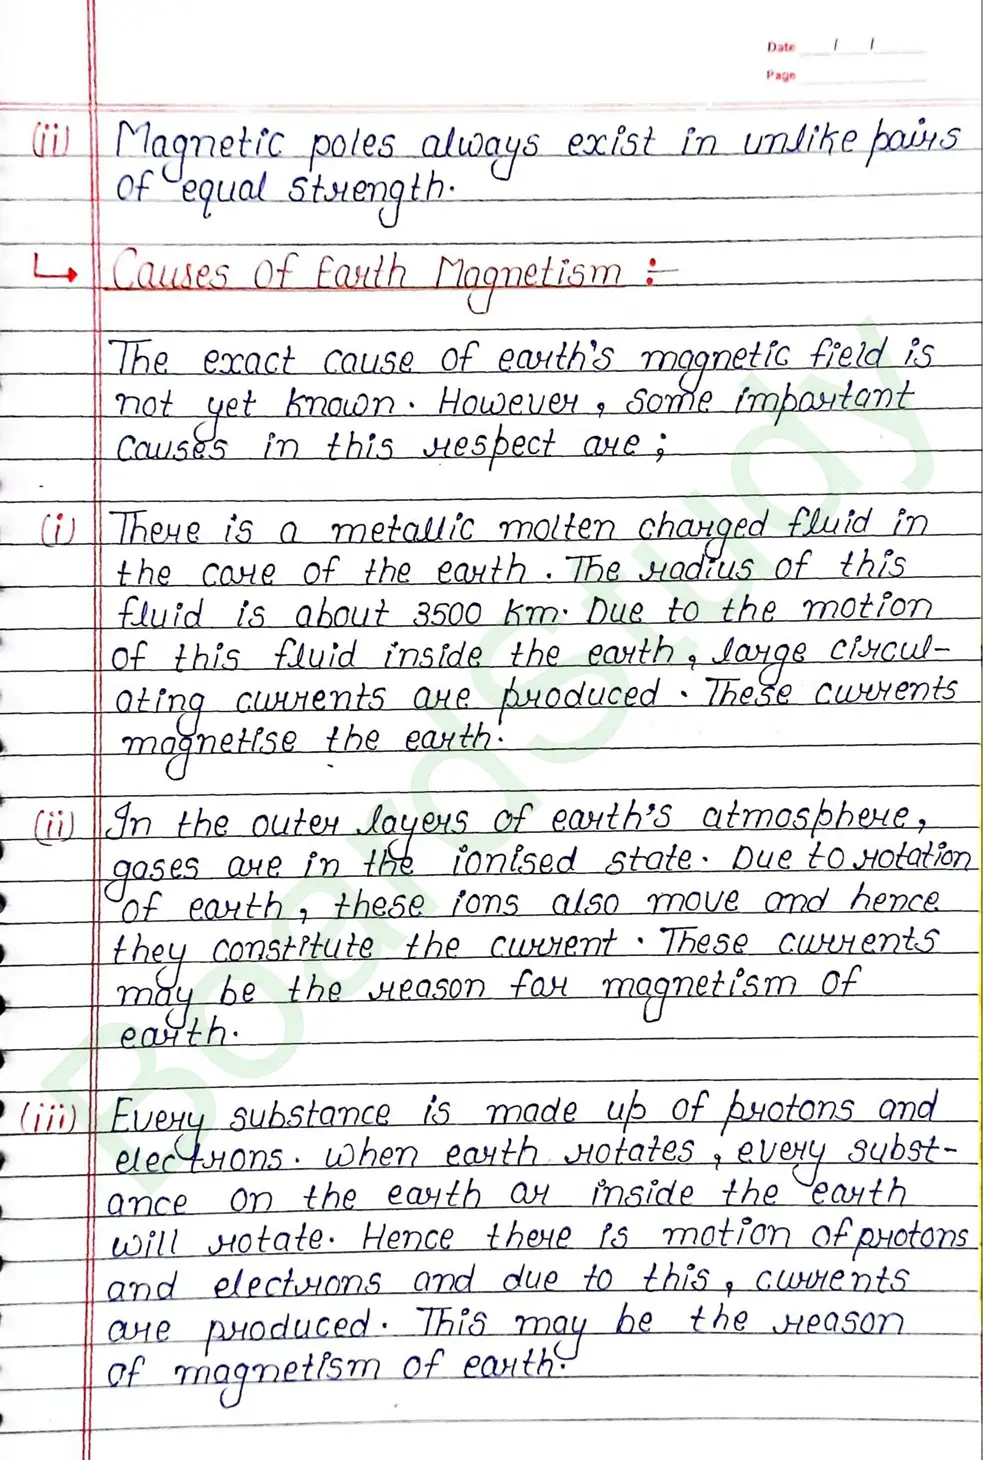 Date / /
Page
(ii) Magnetic poles always exist in unlike pairs
of equal strength.
↳ Causes of Earth Magnetism :-
The exact cause of earth's magnetic field is
not yet known. However, some important
causes in this respect are;
(i) There is a metallic molten charged fluid in
the core of the earth. The radius of this
fluid is about 3500 km. Due to the motion
of this fluid inside the earth, large circul-
ating currents are produced. These currents
magnetise the earth.
(ii) In the outer layers of earth's atmosphere,
gases are in the ionised state. Due to rotation
of earth, these ions also move and hence
they constitute the current. These currents
may be the reason for magnetism of
earth.
(iii) Every substance is made up of protons and
electrons. When earth rotates, every subst-
ance on the earth or inside the earth
will rotate. Hence there is motion of protons
and electrons and due to this, currents
are produced. This may be the reason
of magnetism of earth.
BoardStudy